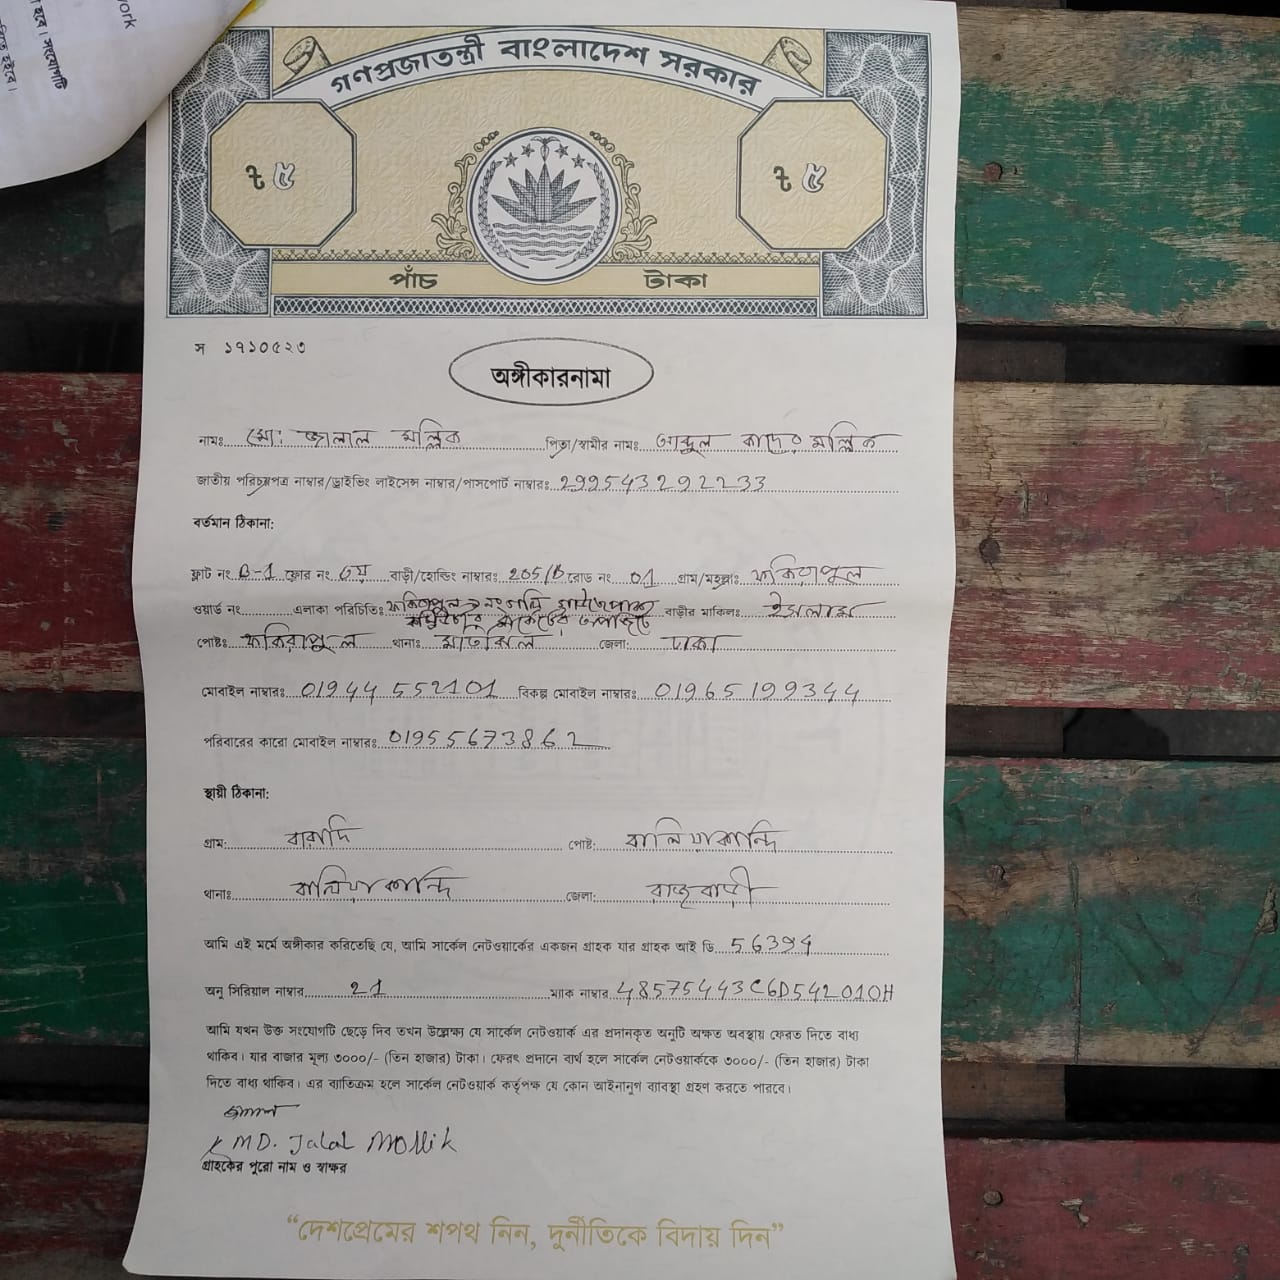 work
হবে। সংযোগটি
হইবে।
গণপ্রজাতন্ত্রী বাংলাদেশ সরকার
৳ ৫ ৳ ৫
পাঁচ টাকা
স ১৭১০৫২৩
অঙ্গীকারনামা
নামঃ মোঃ জালাল মল্লিক পিতা/স্বামীর নামঃ আব্দুল কাদের মল্লিক
জাতীয় পরিচয়পত্র নাম্বার/ড্রাইভিং লাইসেন্স নাম্বার/পাসপোর্ট নাম্বারঃ 299543292233
বর্তমান ঠিকানা:
ফ্লাট নং B-1 ফ্লোর নং ৩য় বাড়ী/হোল্ডিং নাম্বারঃ 205/B রোড নং 01 গ্রাম/মহল্লাঃ ফকিরাপুল
ওয়ার্ড নং এলাকা পরিচিতিঃ ফকিরাপুল ১ নং গলি বাড়ীর মালিকঃ ইসলাম
পোষ্টঃ ফকিরাপুল থানাঃ মতিঝিল জেলা: ঢাকা
মোবাইল নাম্বারঃ 01944 552101 বিকল্প মোবাইল নাম্বারঃ 01965199344
পরিবারের কারো মোবাইল নাম্বারঃ 01955673862
স্থায়ী ঠিকানা:
গ্রাম: বারাদি পোষ্ট: বালিয়াকান্দি
থানাঃ বালিয়াকান্দি জেলা: রাজবাড়ী
আমি এই মর্মে অঙ্গীকার করিতেছি যে, আমি সার্কেল নেটওয়ার্কের একজন গ্রাহক যার গ্রাহক আই ডি 56394
অনু সিরিয়াল নাম্বার 21 ম্যাক নাম্বার 48575443C6D542010H
আমি যখন উক্ত সংযোগটি ছেড়ে দিব তখন উল্লেক্ষ্য যে সার্কেল নেটওয়ার্ক এর প্রদানকৃত অনুটি অক্ষত অবস্থায় ফেরত দিতে বাধ্য
থাকিব। যার বাজার মূল্য ৩০০০/- (তিন হাজার) টাকা। ফেরৎ প্রদানে ব্যর্থ হলে সার্কেল নেটওয়ার্ককে ৩০০০/- (তিন হাজার) টাকা
দিতে বাধ্য থাকিব। এর ব্যাতিক্রম হলে সার্কেল নেটওয়ার্ক কর্তৃপক্ষ যে কোন আইনানুগ ব্যাবস্থা গ্রহণ করতে পারবে।
জালাল
MD. Jalal Mollik
গ্রাহকের পুরো নাম ও স্বাক্ষর
“দেশপ্রেমের শপথ নিন, দুর্নীতিকে বিদায় দিন”